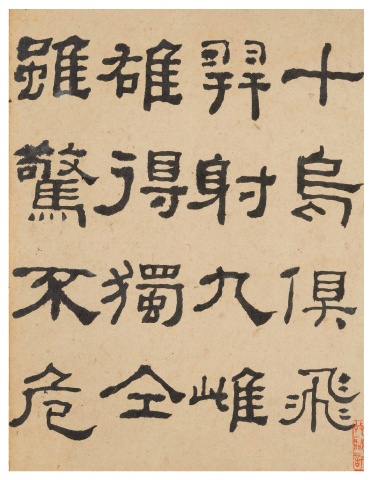 十烏俱飛
羿射九雌
雄得獨仝
雖驚不危